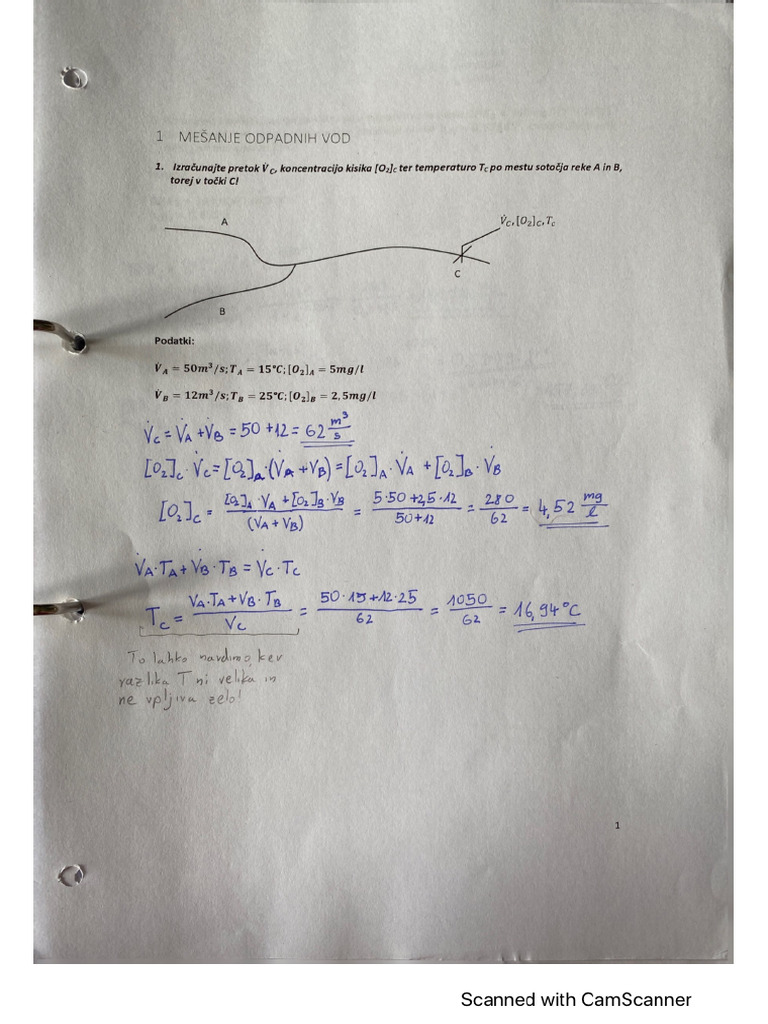 1 MEŠANJE ODPADNIH VOD
1. Izračunajte pretok V̇_C, koncentracijo kisika [O₂]_C ter temperaturo T_C po mestu sotočja reke A in B,
torej v točki C!
A
V̇_C, [O₂]_C, T_c
C
B
Podatki:
V̇_A = 50m³/s; T_A = 15°C; [O₂]_A = 5mg/l
V̇_B = 12m³/s; T_B = 25°C; [O₂]_B = 2,5mg/l
V̇_C = V̇_A + V̇_B = 50 + 12 = 62 m³/s
[O₂]_C · V̇_C = [O₂]_A · (V̇_A + V̇_B) = [O₂]_A · V̇_A + [O₂]_B · V̇_B
[O₂]_C = ([O₂]_A · V_A + [O₂]_B · V_B) / (V_A + V_B) = (5·50 + 2,5·12) / (50+12) = 280/62 = 4,52 mg/l
V̇_A · T_A + V̇_B · T_B = V̇_C · T_C
T_C = (V_A · T_A + V_B · T_B) / V_C = (50·15 + 12·25) / 62 = 1050/62 = 16,94°C
To lahko ker
razlika T ni velika in
ne vpljiva zelo!
1
Scanned with CamScanner